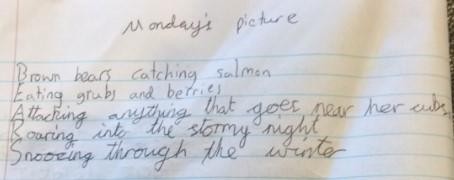 Monday's picture
Brown bears catching salmon
Eating grubs and berries
Attacking anything that goes near her cubs
Roaring into the stormy night
Snoozing through the winter